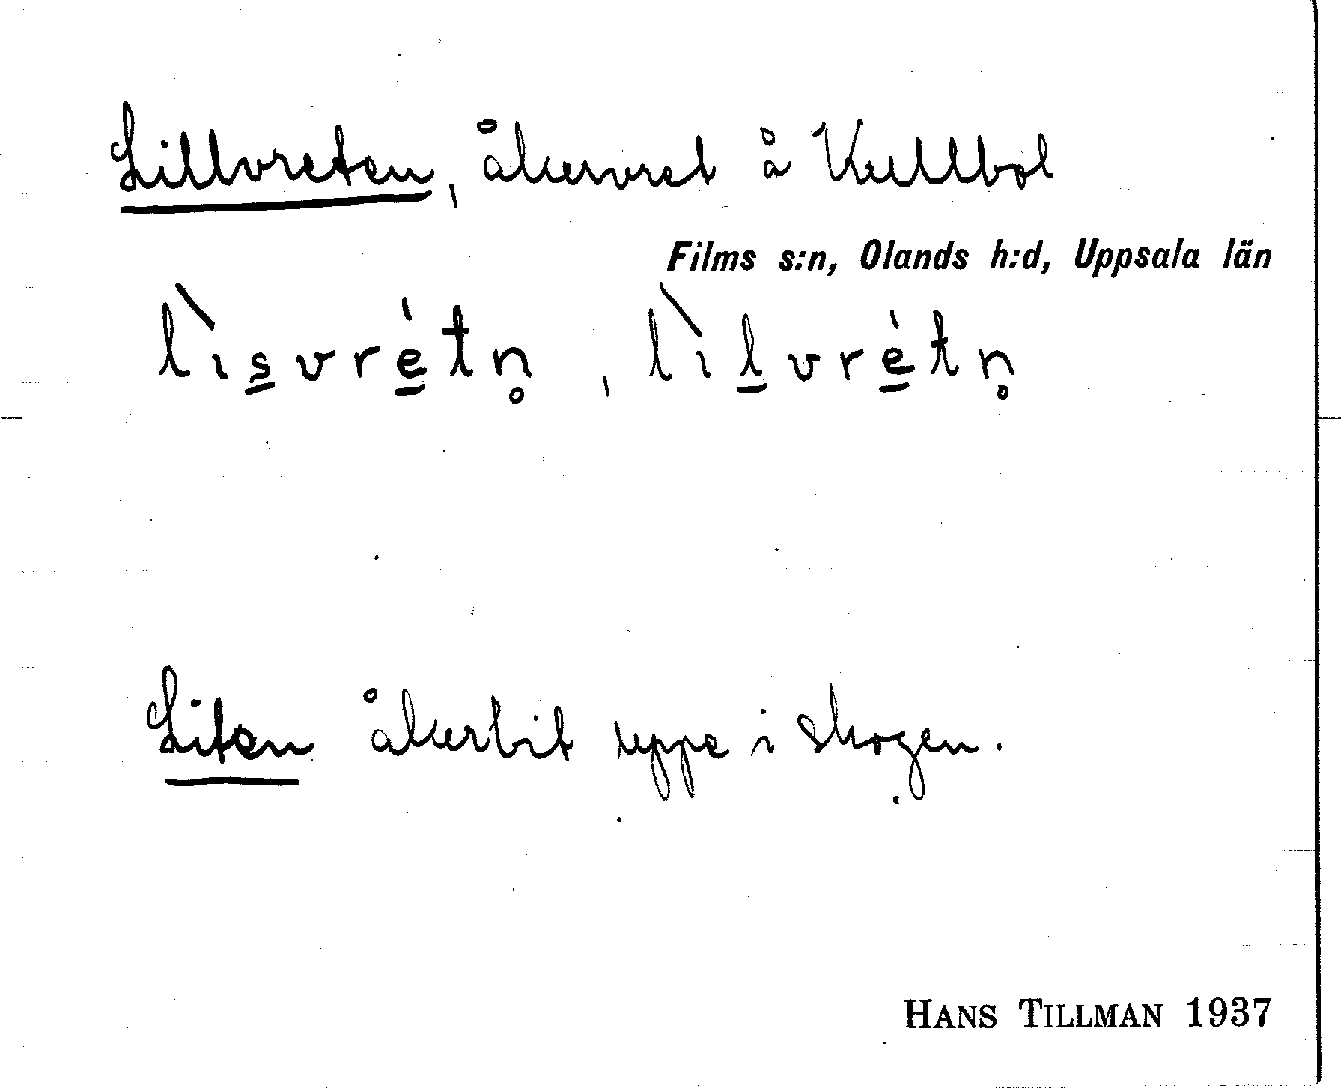 Lillvreten, åkervret å Kullbol
Films s:n, Olands h:d, Uppsala län
lìs̲vre̲̍tn̥, lìl̲vre̲̍tn̥
Liten åkerbit uppe i skogen.
HANS TILLMAN 1937